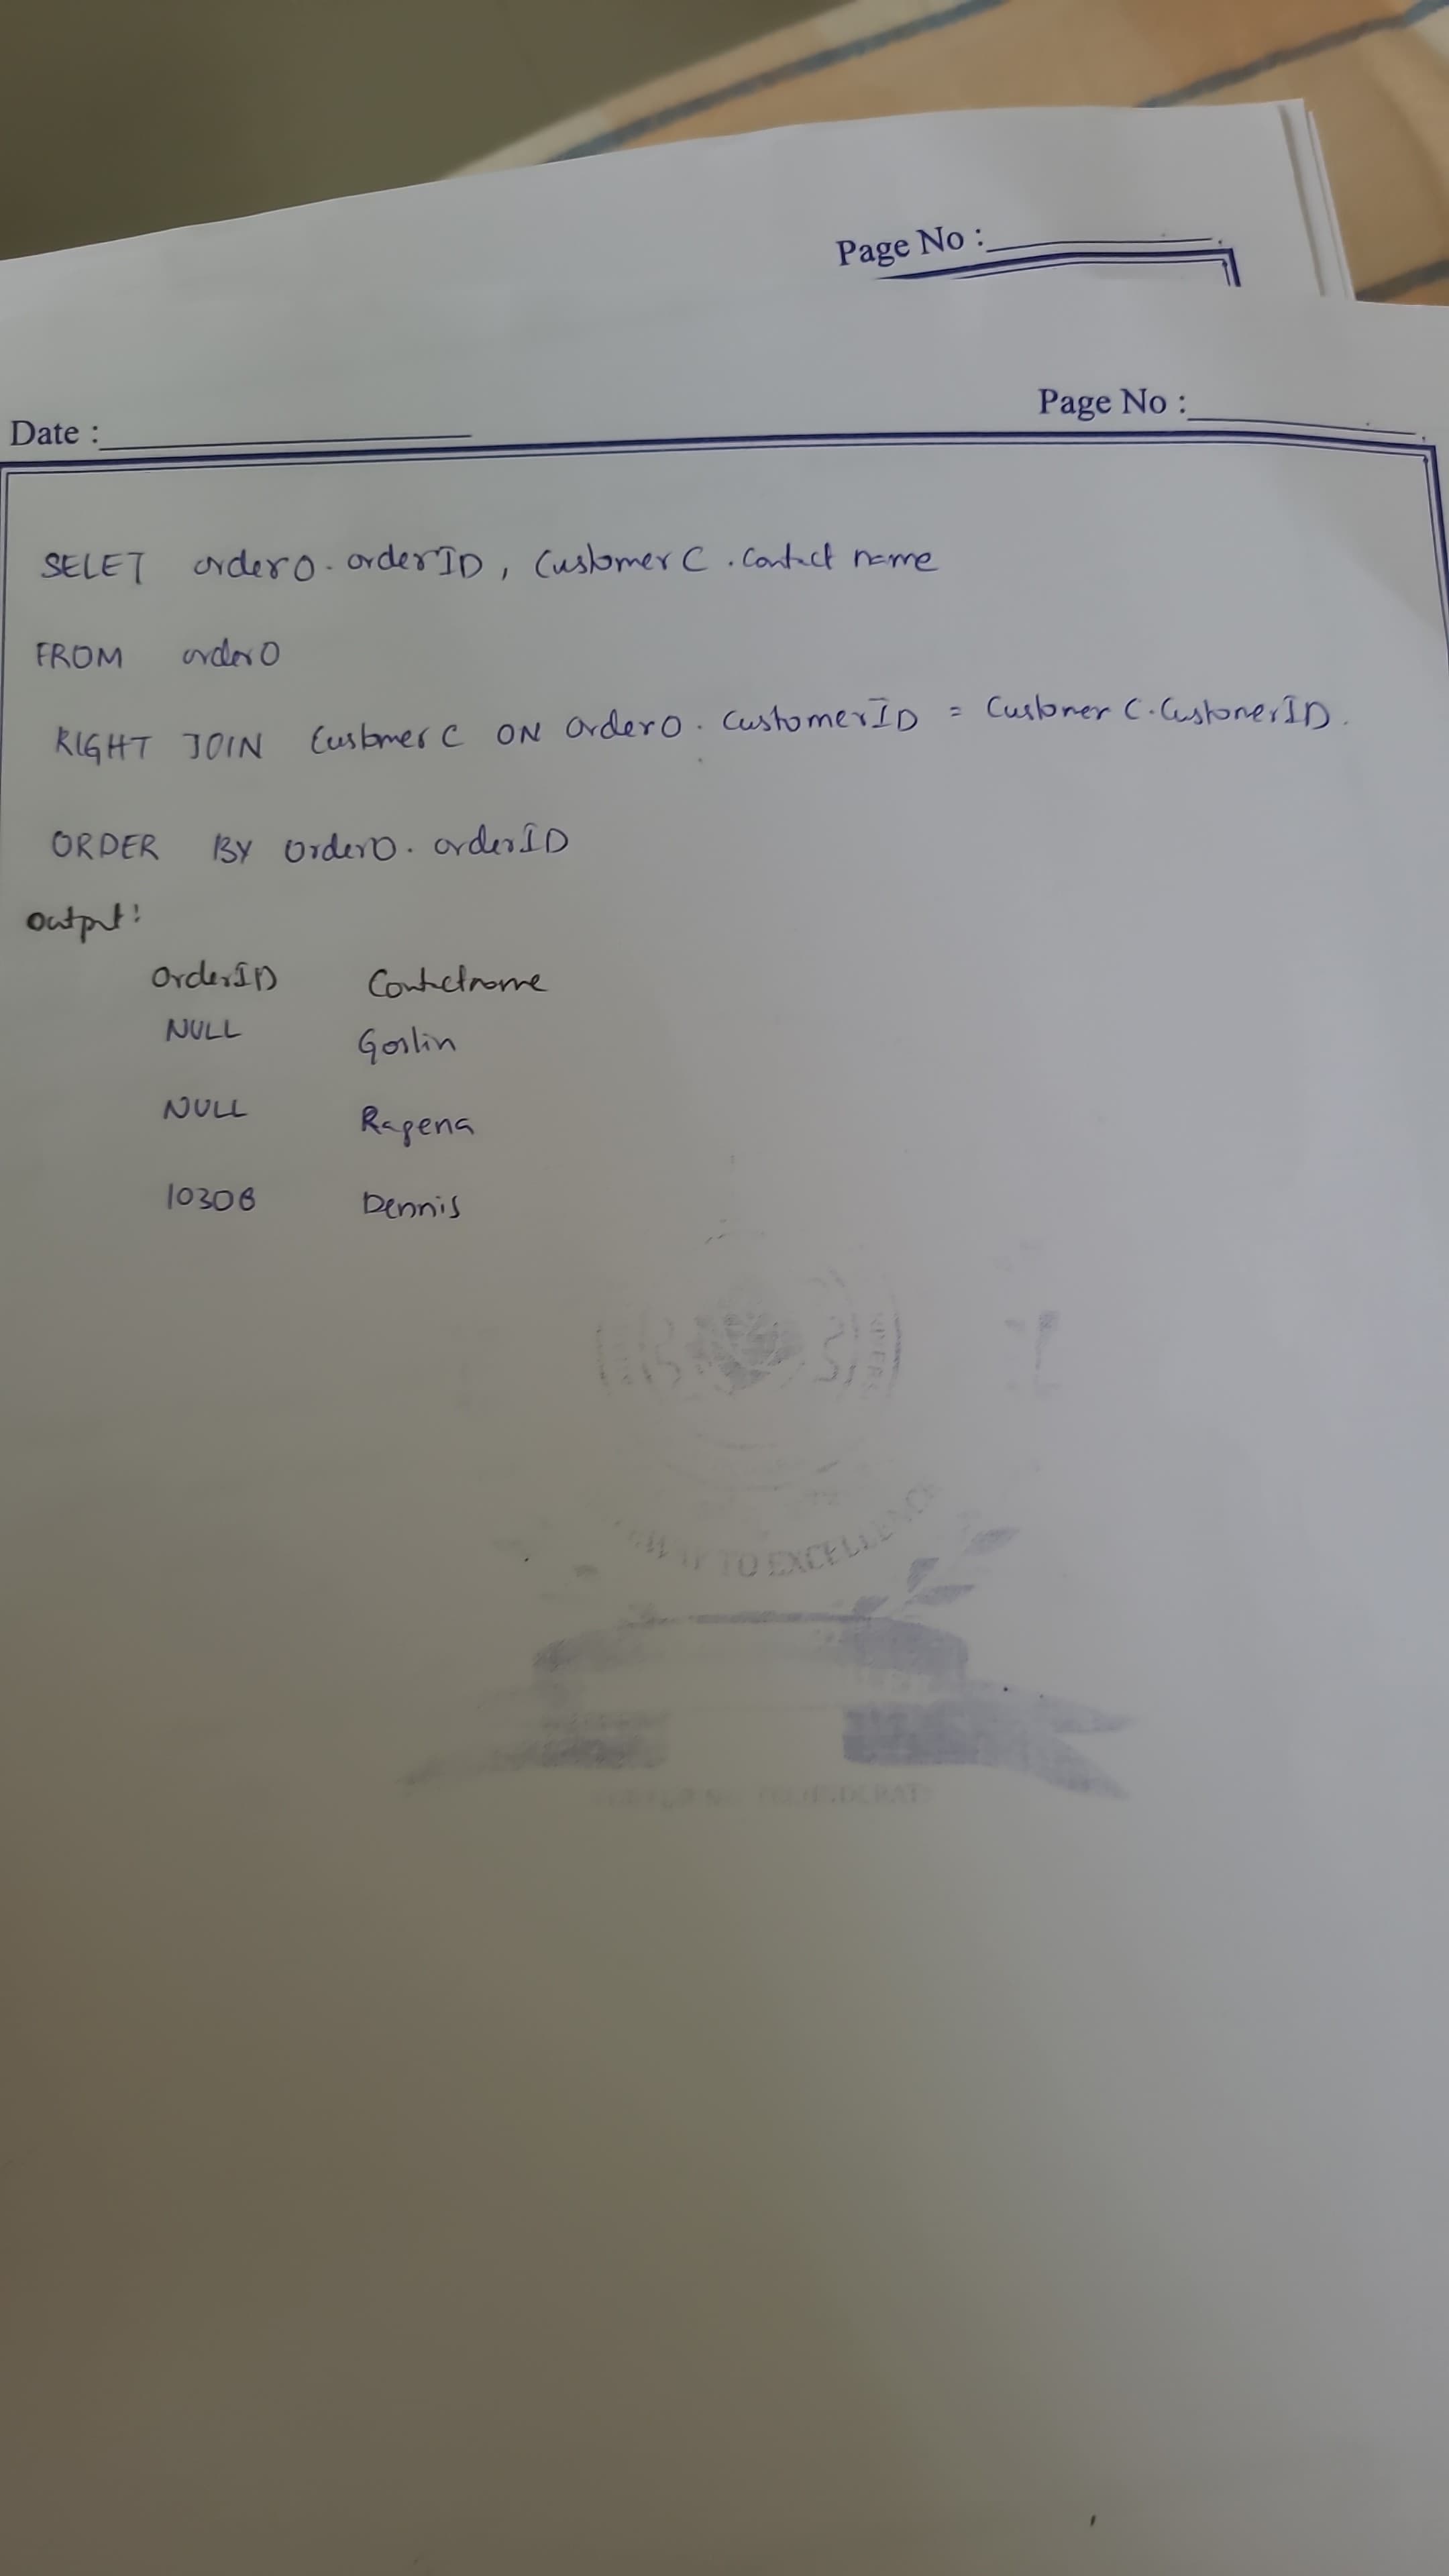 Page No :
Date :
Page No :
SELET orderO.orderID, CustomerC.Contact name
FROM orderO
RIGHT JOIN CustomerC ON OrderO.CustomerID = CustomerC.CustomerID.
ORDER BY OrderO.orderID
Output:
OrderID Contactname
NULL Goslin
NULL Ragena
10308 Dennis
TO EXCELLENCE